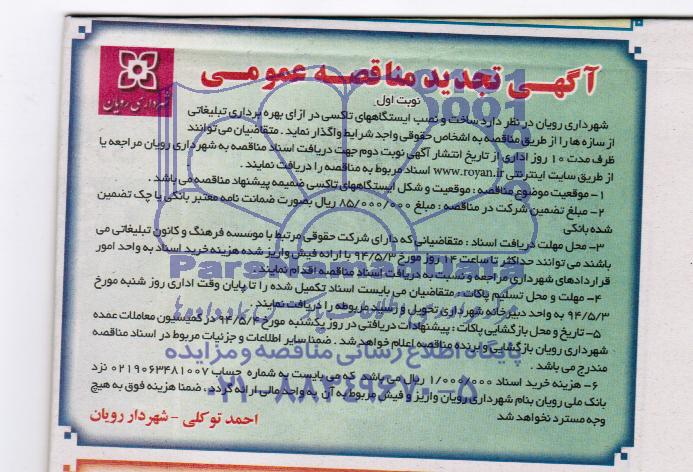 آگهی تجدید مناقصه عمومی
شهرداری رویان
نوبت اول
شهرداری رویان در نظر دارد ساخت و نصب ایستگاههای تاکسی در ازای بهره برداری تبلیغاتی
از سازه ها را از طریق مناقصه به اشخاص حقوقی واجد شرایط واگذار نماید . متقاضیان می توانند
ظرف مدت ۱۰ روز اداری از تاریخ انتشار آگهی نوبت دوم جهت دریافت اسناد مناقصه به شهرداری رویان مراجعه یا
از طریق سایت اینترنتی www.royan.ir اسناد مربوط به مناقصه را دریافت نمایند .
۱- موقعیت موضوع مناقصه : موقعیت و شکل ایستگاههای تاکسی ضمیمه پیشنهاد مناقصه می باشد .
۲- مبلغ تضمین شرکت در مناقصه : مبلغ ۸۵/۰۰۰/۰۰۰ ریال بصورت ضمانت نامه معتبر بانکی یا چک تضمین
شده بانکی
۳- محل مهلت دریافت اسناد : متقاضیانی که دارای شرکت حقوقی مرتبط با موسسه فرهنگ و کانون تبلیغاتی می
باشند می توانند حداکثر تا ساعت ۱۴ روز مورخ ۹۴/۵/۳ با ارائه فیش واریز شده هزینه خرید اسناد به واحد امور
قراردادهای شهرداری مراجعه و نسبت به دریافت اسناد مناقصه اقدام نمایند .
۴- مهلت و محل تسلیم پاکات : متقاضیان می بایست اسناد تکمیل شده را تا پایان وقت اداری روز شنبه مورخ
۹۴/۵/۳ به واحد دبیرخانه شهرداری تحویل و رسید مربوطه را دریافت نمایند .
۵- تاریخ و محل بازگشایی پاکات : پیشنهادات دریافتی در روز یکشنبه مورخ ۹۴/۵/۴ در کمیسیون معاملات عمده
شهرداری رویان بازگشایی و برنده مناقصه اعلام خواهد شد . ضمنا سایر اطلاعات و جزئیات مربوط در اسناد مناقصه
مندرج می باشد .
۶- هزینه خرید اسناد ۱/۰۰۰/۰۰۰ ریال می باشد که می بایست به شماره حساب ۰۲۱۹۰۶۳۴۸۱۰۰۷ نزد
بانک ملی رویان بنام شهرداری رویان واریز و فیش مربوط به آن به واحد مالی ارائه گردد . ضمنا هزینه فوق به هیچ
وجه مسترد نخواهد شد
احمد توکلی - شهردار رویان
ParsNamadData
پایگاه اطلاع رسانی مناقصه و مزایده
۰۲۱-۸۸۳۴۹۶۷۰-۵